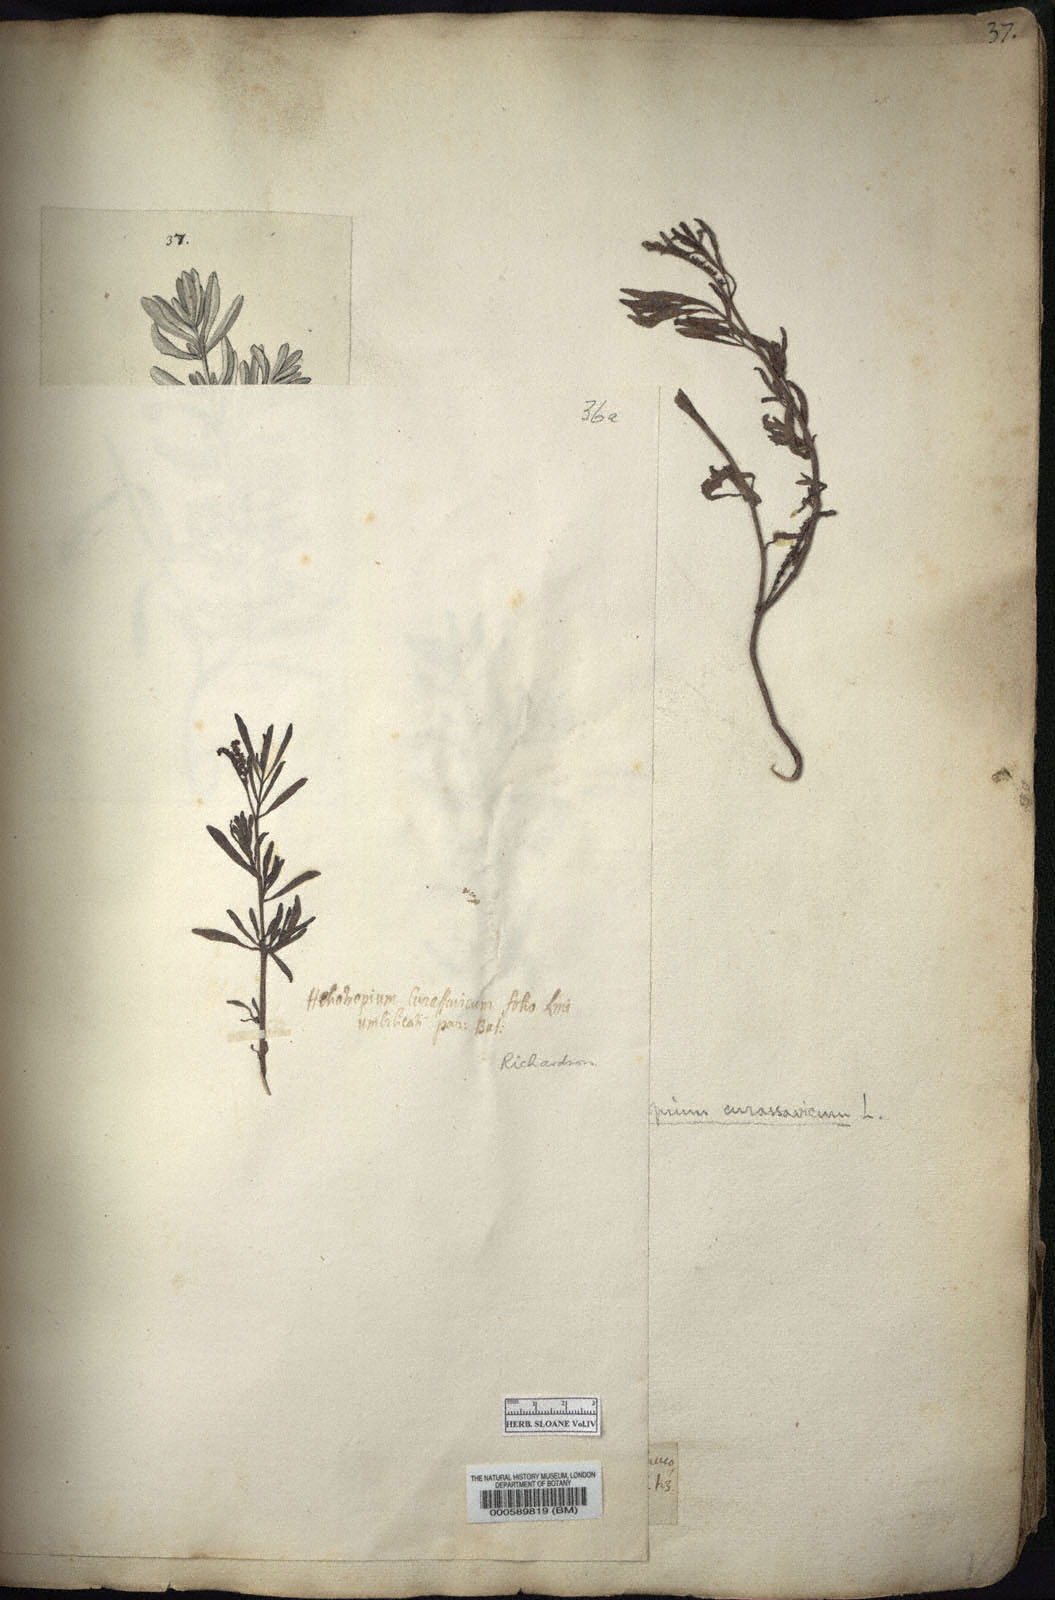 37.
37.
36a
Heliotropium Curassavicum folio Lini
umbilicati par: Bat:
Richardson
pium curassavicum L.
HERB. SLOANE Vol.IV
THE NATURAL HISTORY MUSEUM, LONDON
DEPARTMENT OF BOTANY
000589819 (BM)